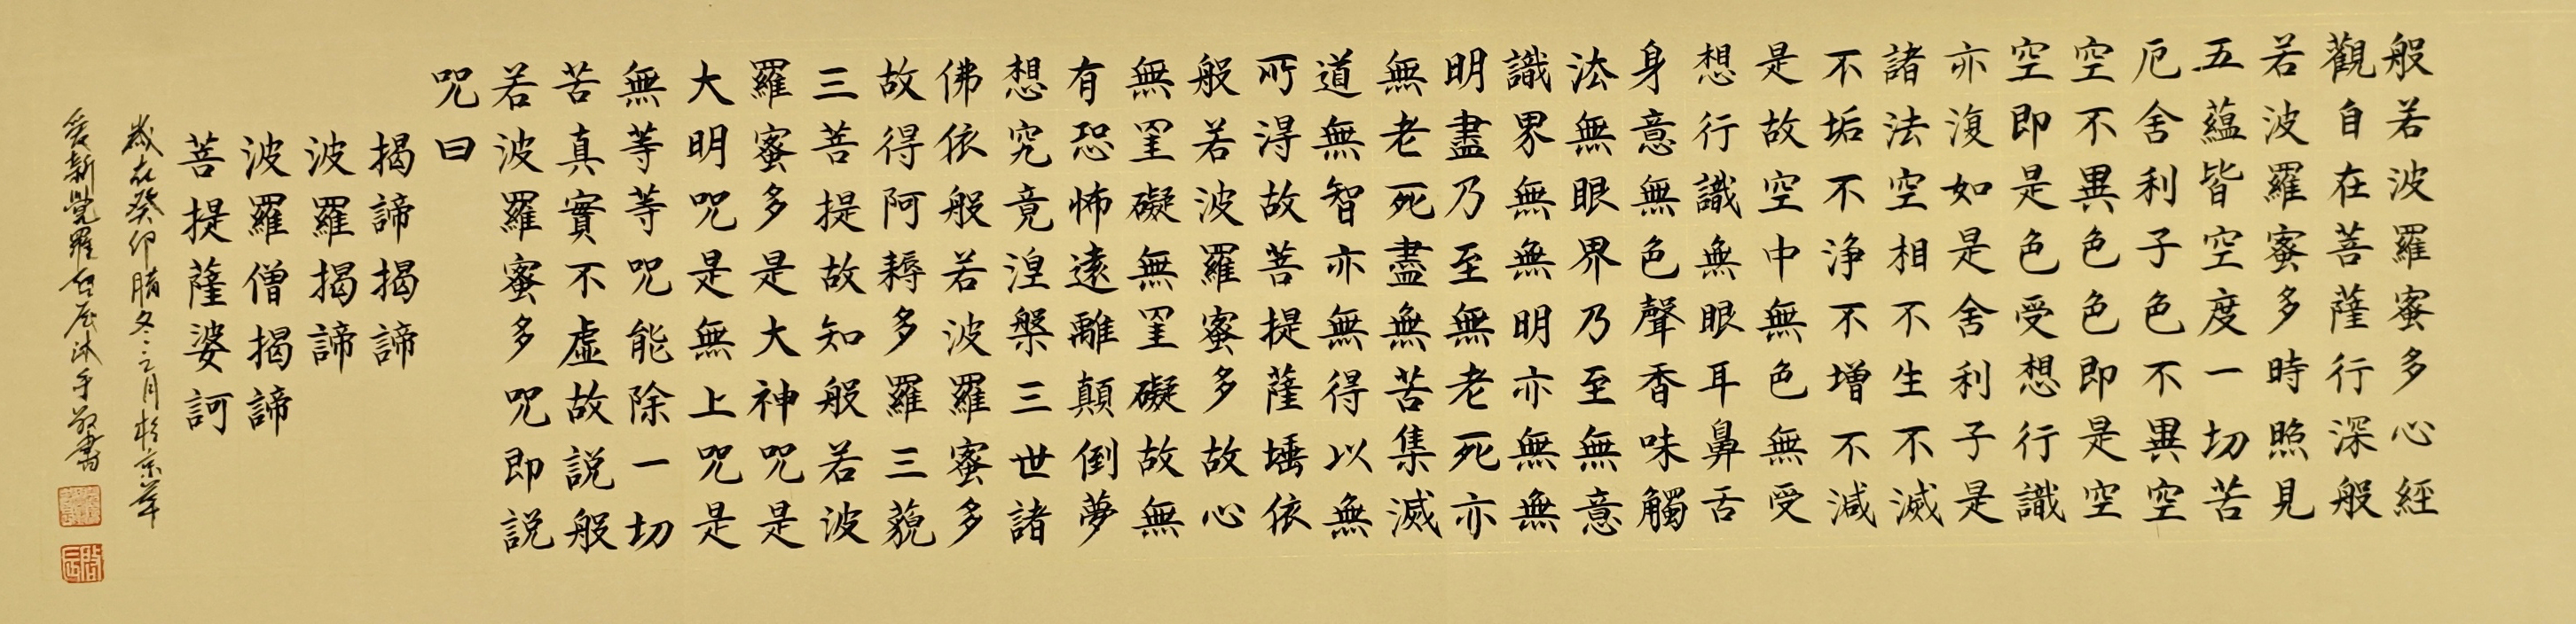 般若波羅蜜多心經
觀自在菩薩行深般
若波羅蜜多時照見
五蘊皆空度一切苦
厄舍利子色不異空
空不異色色即是空
空即是色受想行識
亦復如是舍利子是
諸法空相不生不滅
不垢不淨不增不減
是故空中無色無受
想行識無眼耳鼻舌
身意無色聲香味觸
法無眼界乃至無意
識界無無明亦無無
明盡乃至無老死亦
無老死盡無苦集滅
道無智亦無得以無
所得故菩提薩埵依
般若波羅蜜多故心
無罣礙無罣礙故無
有恐怖遠離顛倒夢
想究竟涅槃三世諸
佛依般若波羅蜜多
故得阿耨多羅三藐
三菩提故知般若波
羅蜜多是大神咒是
大明咒是無上咒是
無等等咒能除一切
苦真實不虛故説般
若波羅蜜多咒即説
咒曰
揭諦揭諦
波羅揭諦
波羅僧揭諦
菩提薩婆訶
歲在癸卯腊冬之月於京華
愛新覺羅沐手敬書